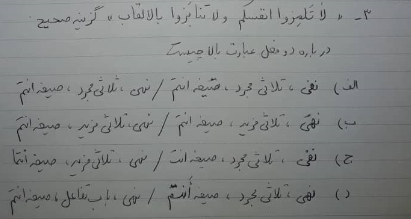 ۳- « لا تَلمِزوا انفسکم ولا تَنابَزوا بالالقاب » گزینه صحیح
درباره دو فعل عبارت بالا چیست
الف) نفی ، ثلاثی مجرد ، صیغه انتم / نهی ، ثلاثی مجرد ، صیغه انتم
ب) نهی ، ثلاثی مزید ، صیغه انتم / نهی ، ثلاثی مزید ، صیغه انتم
ج) نفی ، ثلاثی مجرد ، صیغه انت / نهی ، ثلاثی مزید ، صیغه انتما
د) نهی ، ثلاثی مجرد ، صیغه أنتم / نهی ، باب تفاعل ، صیغه انتم